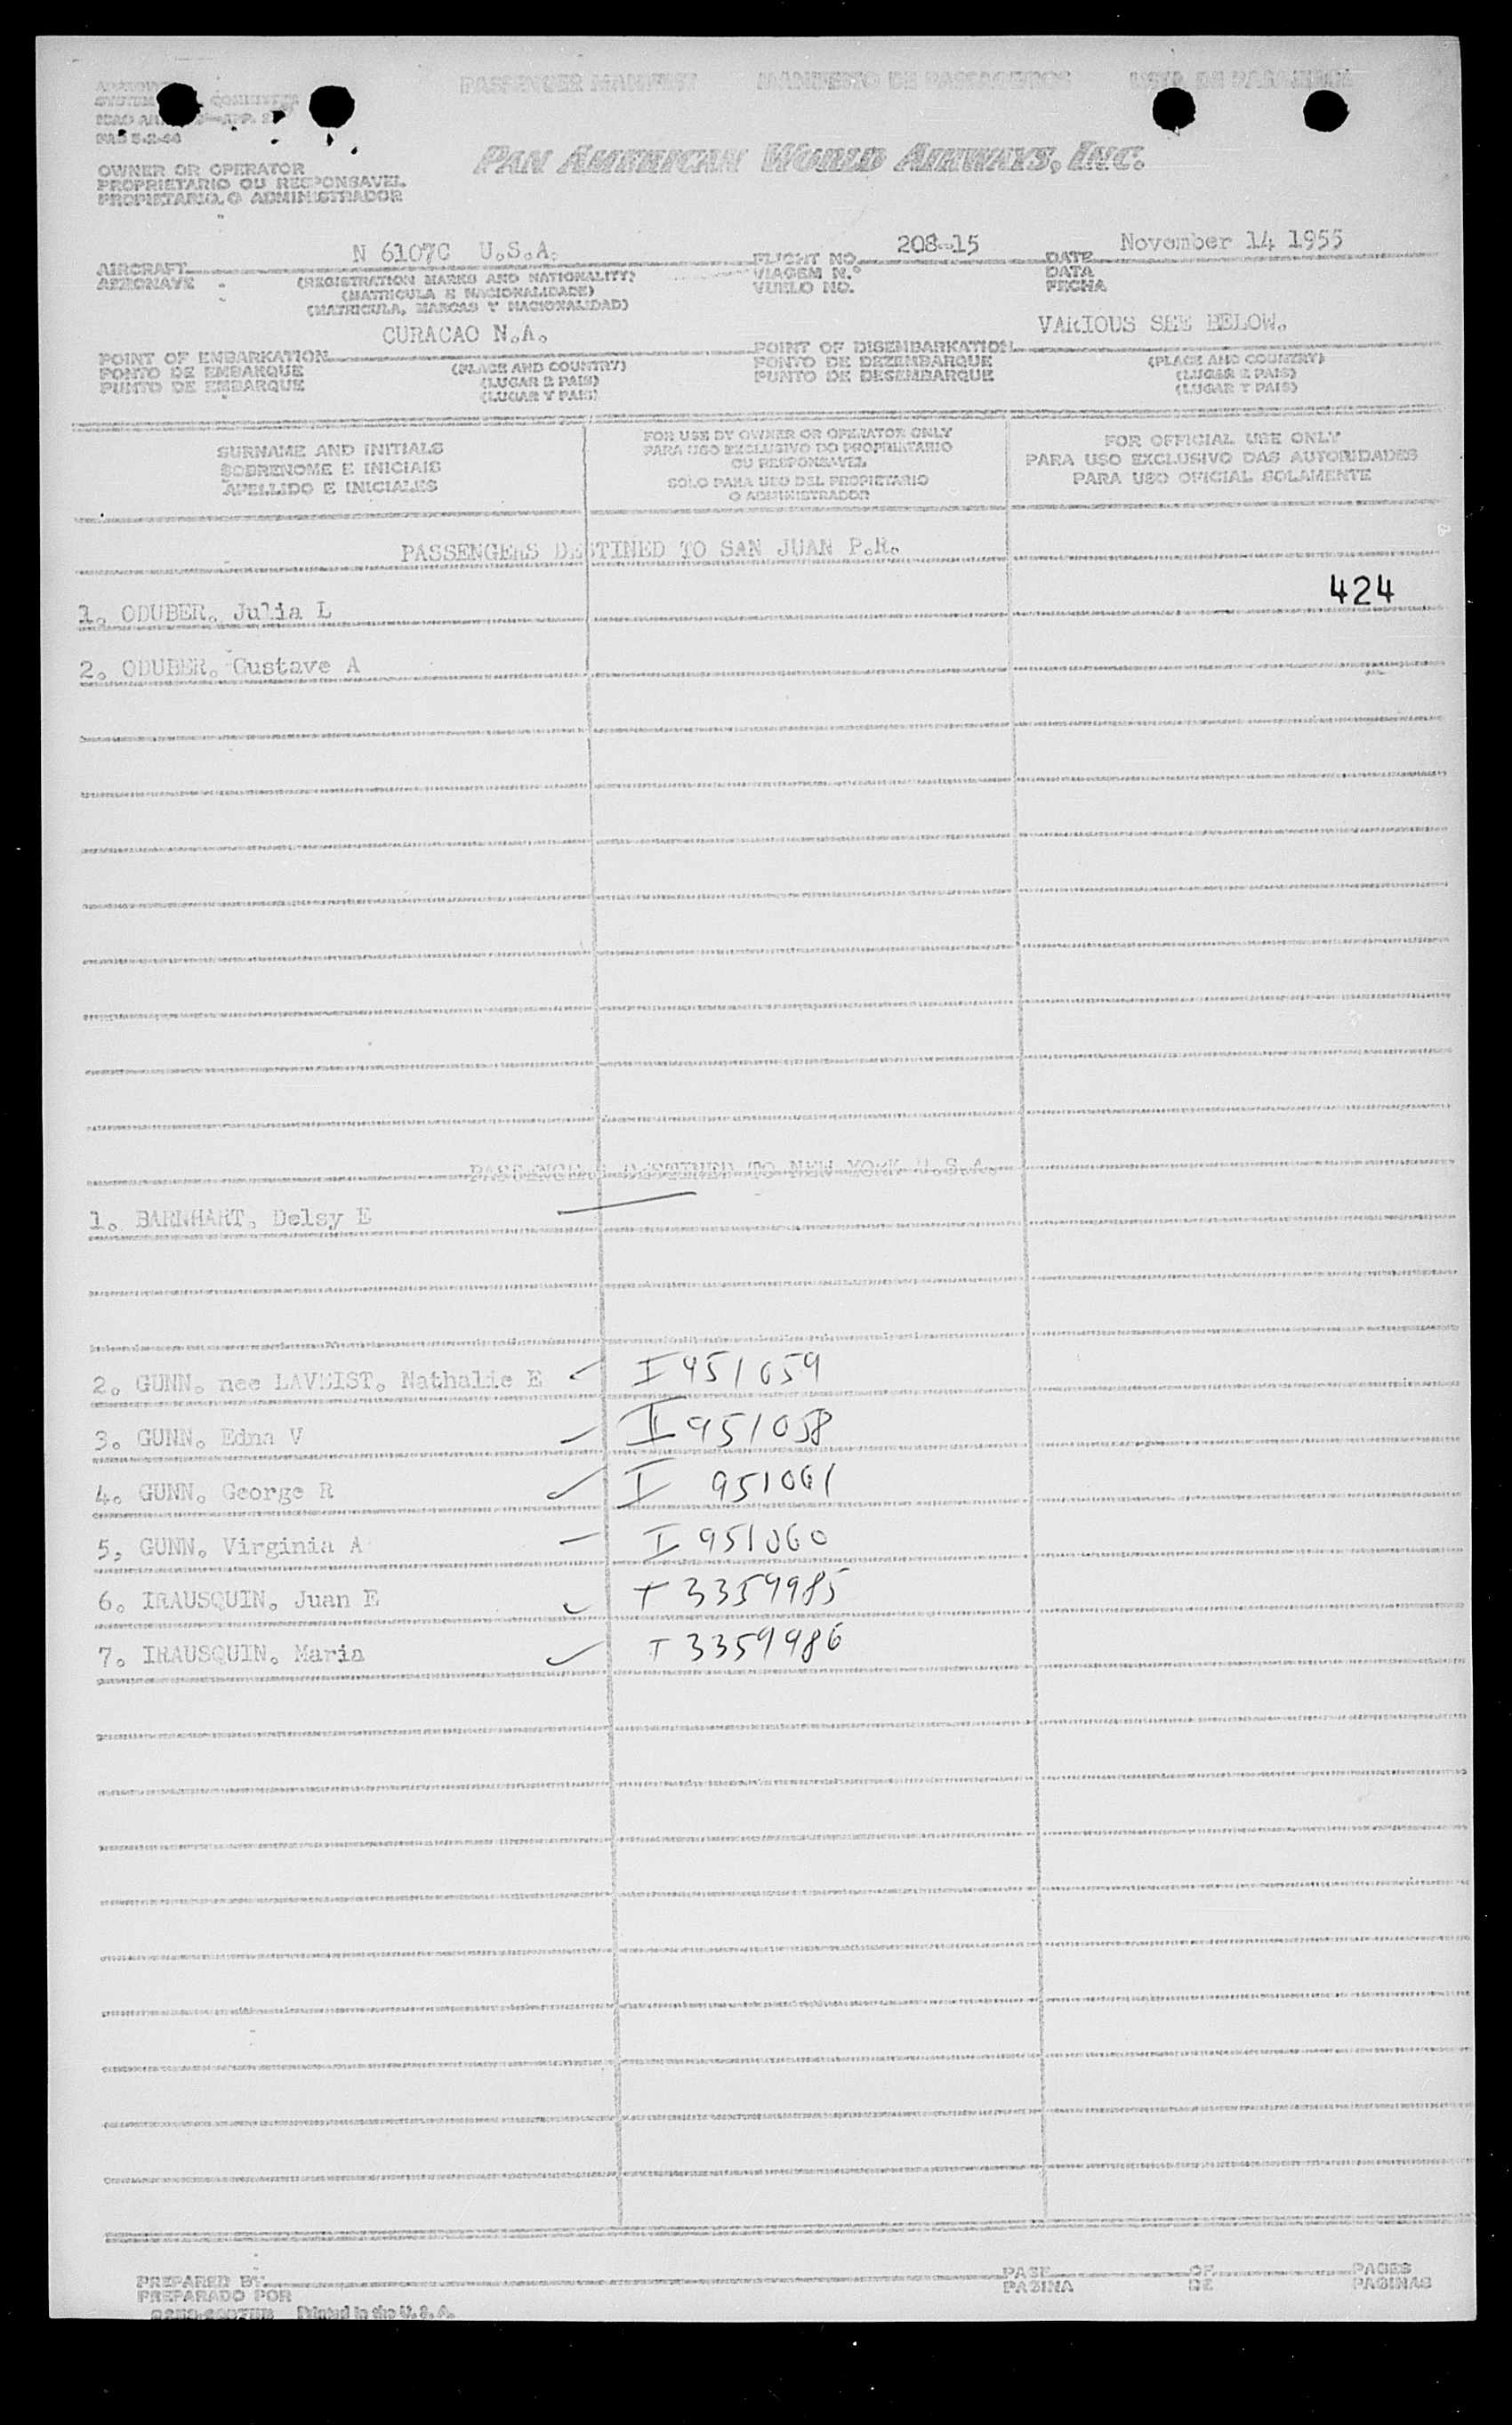 PASSENGER MANIFEST MANIFESTO DE PASSAGEIROS LISTA DE PASAJEROS
PAN AMERICAN WORLD AIRWAYS, INC.
OWNER OR OPERATOR
PROPRIETARIO OU RESPONSAVEL
PROPIETARIO O ADMINISTRADOR
N 6107C U.S.A. 208-15 November 14 1955
AIRCRAFT FLIGHT NO. DATE
AERONAVE (REGISTRATION MARKS AND NATIONALITY) VIAGEM N.º DATA
(MATRICULA E NACIONALIDADE) VUELO NO. FECHA
(MATRICULA, MARCAS Y NACIONALIDAD)
CURACAO N.A. VARIOUS SEE BELOW.
POINT OF EMBARKATION POINT OF DISEMBARKATION
PONTO DE EMBARQUE (PLACE AND COUNTRY) PONTO DE DEZEMBARQUE (PLACE AND COUNTRY)
PUNTO DE EMBARQUE (LUGAR E PAIS) PUNTO DE DESEMBARQUE (LUGAR E PAIS)
(LUGAR Y PAIS) (LUGAR Y PAIS)
SURNAME AND INITIALS
SOBRENOME E INICIAIS
APELLIDO E INICIALES
FOR USE BY OWNER OR OPERATOR ONLY
PARA USO EXCLUSIVO DO PROPRIETARIO
OU RESPONSAVEL
SOLO PARA USO DEL PROPIETARIO
O ADMINISTRADOR
FOR OFFICIAL USE ONLY
PARA USO EXCLUSIVO DAS AUTORIDADES
PARA USO OFICIAL SOLAMENTE
PASSENGERS DESTINED TO SAN JUAN P.R.
424
1. ODUBER. Julia L
2. ODUBER. Gustave A
PASSENGERS DESTINED TO NEW YORK U.S.A.
1. BARNHART. Delsy E
2. GUNN. nee LAVEIST. Nathalie E I 951059
3. GUNN. Edna V I 951058
4. GUNN. George R I 951061
5, GUNN. Virginia A I 951060
6. IRAUSQUIN. Juan E T 3359985
7. IRAUSQUIN. Maria T 3359986
PREPARED BY PAGE OF PAGES
PREPARADO POR PAGINA DE PAGINAS
Printed in the U.S.A.